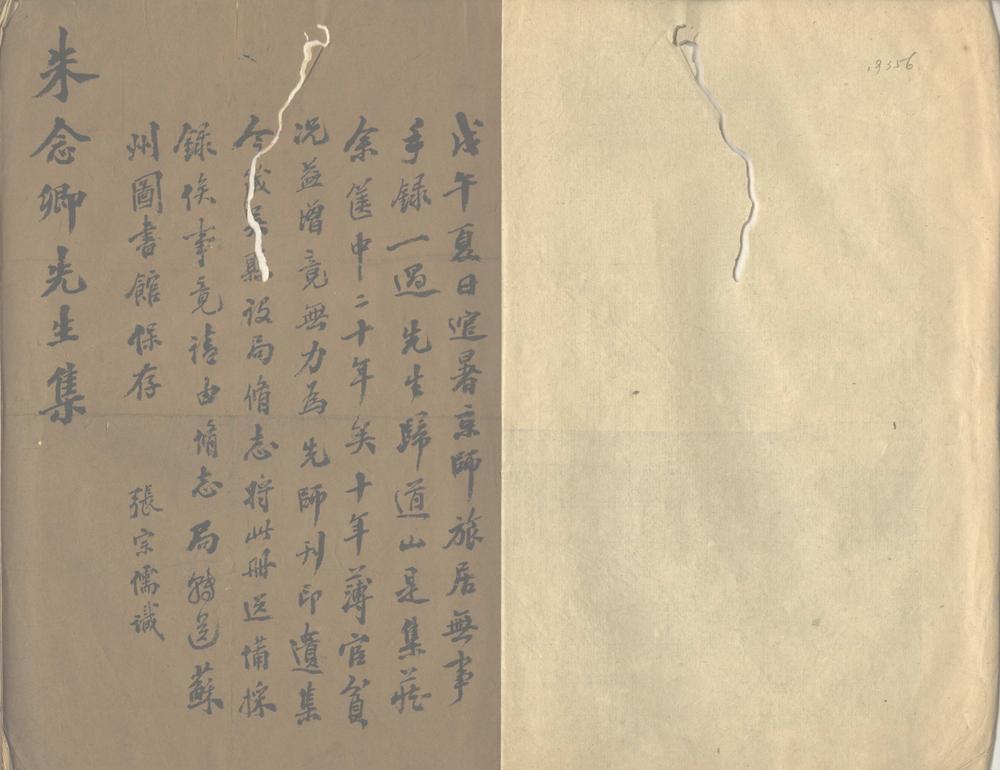 戊午夏日逭暑京師旅居無事
手録一過先生歸道山是集藏
余篋中二十年矣十年薄宦貧
况益增竟無力為先師刊印遺集
今歲吳縣設局脩志將此冊送備採
録俟事竟請由脩志局轉送蘇
州圖書館保存
張宗儒識
朱念卿先生集